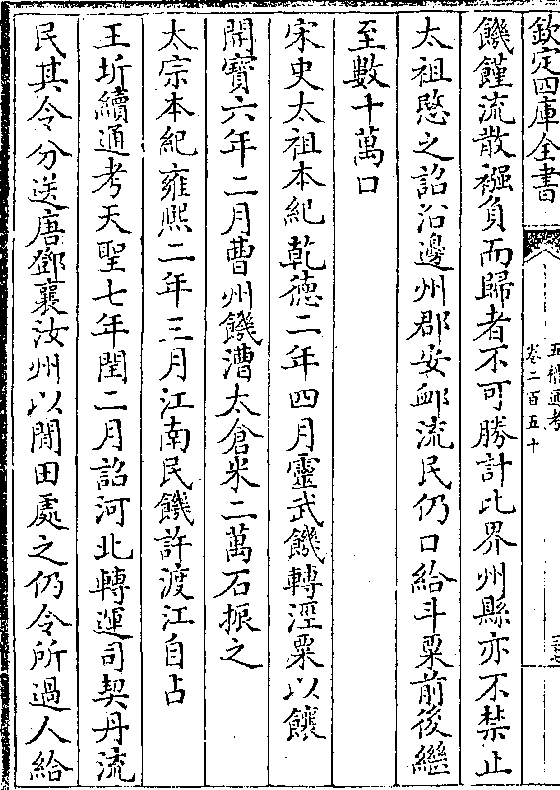 欽定四庫全書
五禮通考
卷二百五十
饑饉流散襁負而歸者不可勝計比界州縣亦不禁止
太祖愍之詔沿邊州郡安卹流民仍口給斗粟前後繼
至數十萬口
宋史太祖本紀乾德二年四月靈武饑轉涇粟以饟
開寶六年二月曹州饑漕太倉米二萬石振之
太宗本紀雍熙二年三月江南民饑許渡江自占
王圻續通考天聖七年閏二月詔河北轉運司契丹流
民其令分送唐鄧襄汝州以閒田處之仍令所過人給